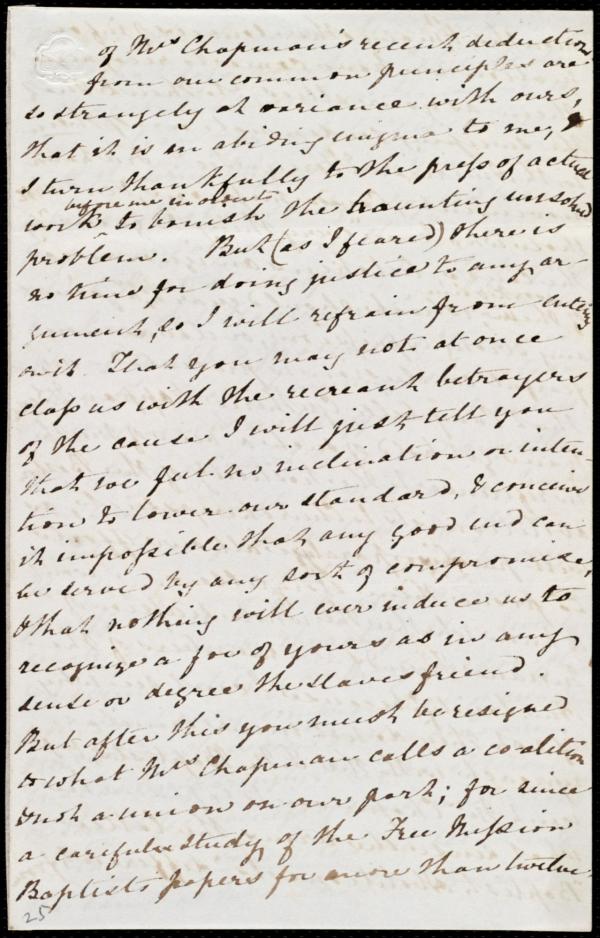 of Mrs Chapman's recent deductions
from our common principles are
so strangely at variance with ours,
that it is an abiding enigma to me, &
I turn thankfully to the press of actual
before me in
work to banish the haunting unsolved
problem. But (as I feared) there is
no time for doing justice to any ar-
gument, so I will refrain from entering
on it. That you may not at once
class us with the recreant betrayers
of the cause I will just tell you
that we feel no inclination or inten-
tion to lower our standard, & conceive
it impossible that any good end can
be served by any sort of compromise,
& that nothing will ever induce us to
recognize a foe of yours as in any
sense or degree the slaves friend.
But after this you must be resigned
to what Mrs Chapman calls a coalition
& not a union on our part; for since
a careful study of the Free Mission
Baptists papers for more than twelve
25